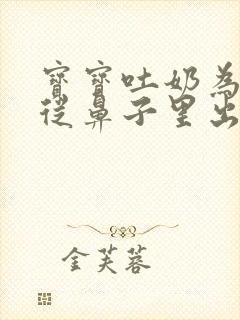 寶寶吐奶為
從鼻子里出
金芙蓉